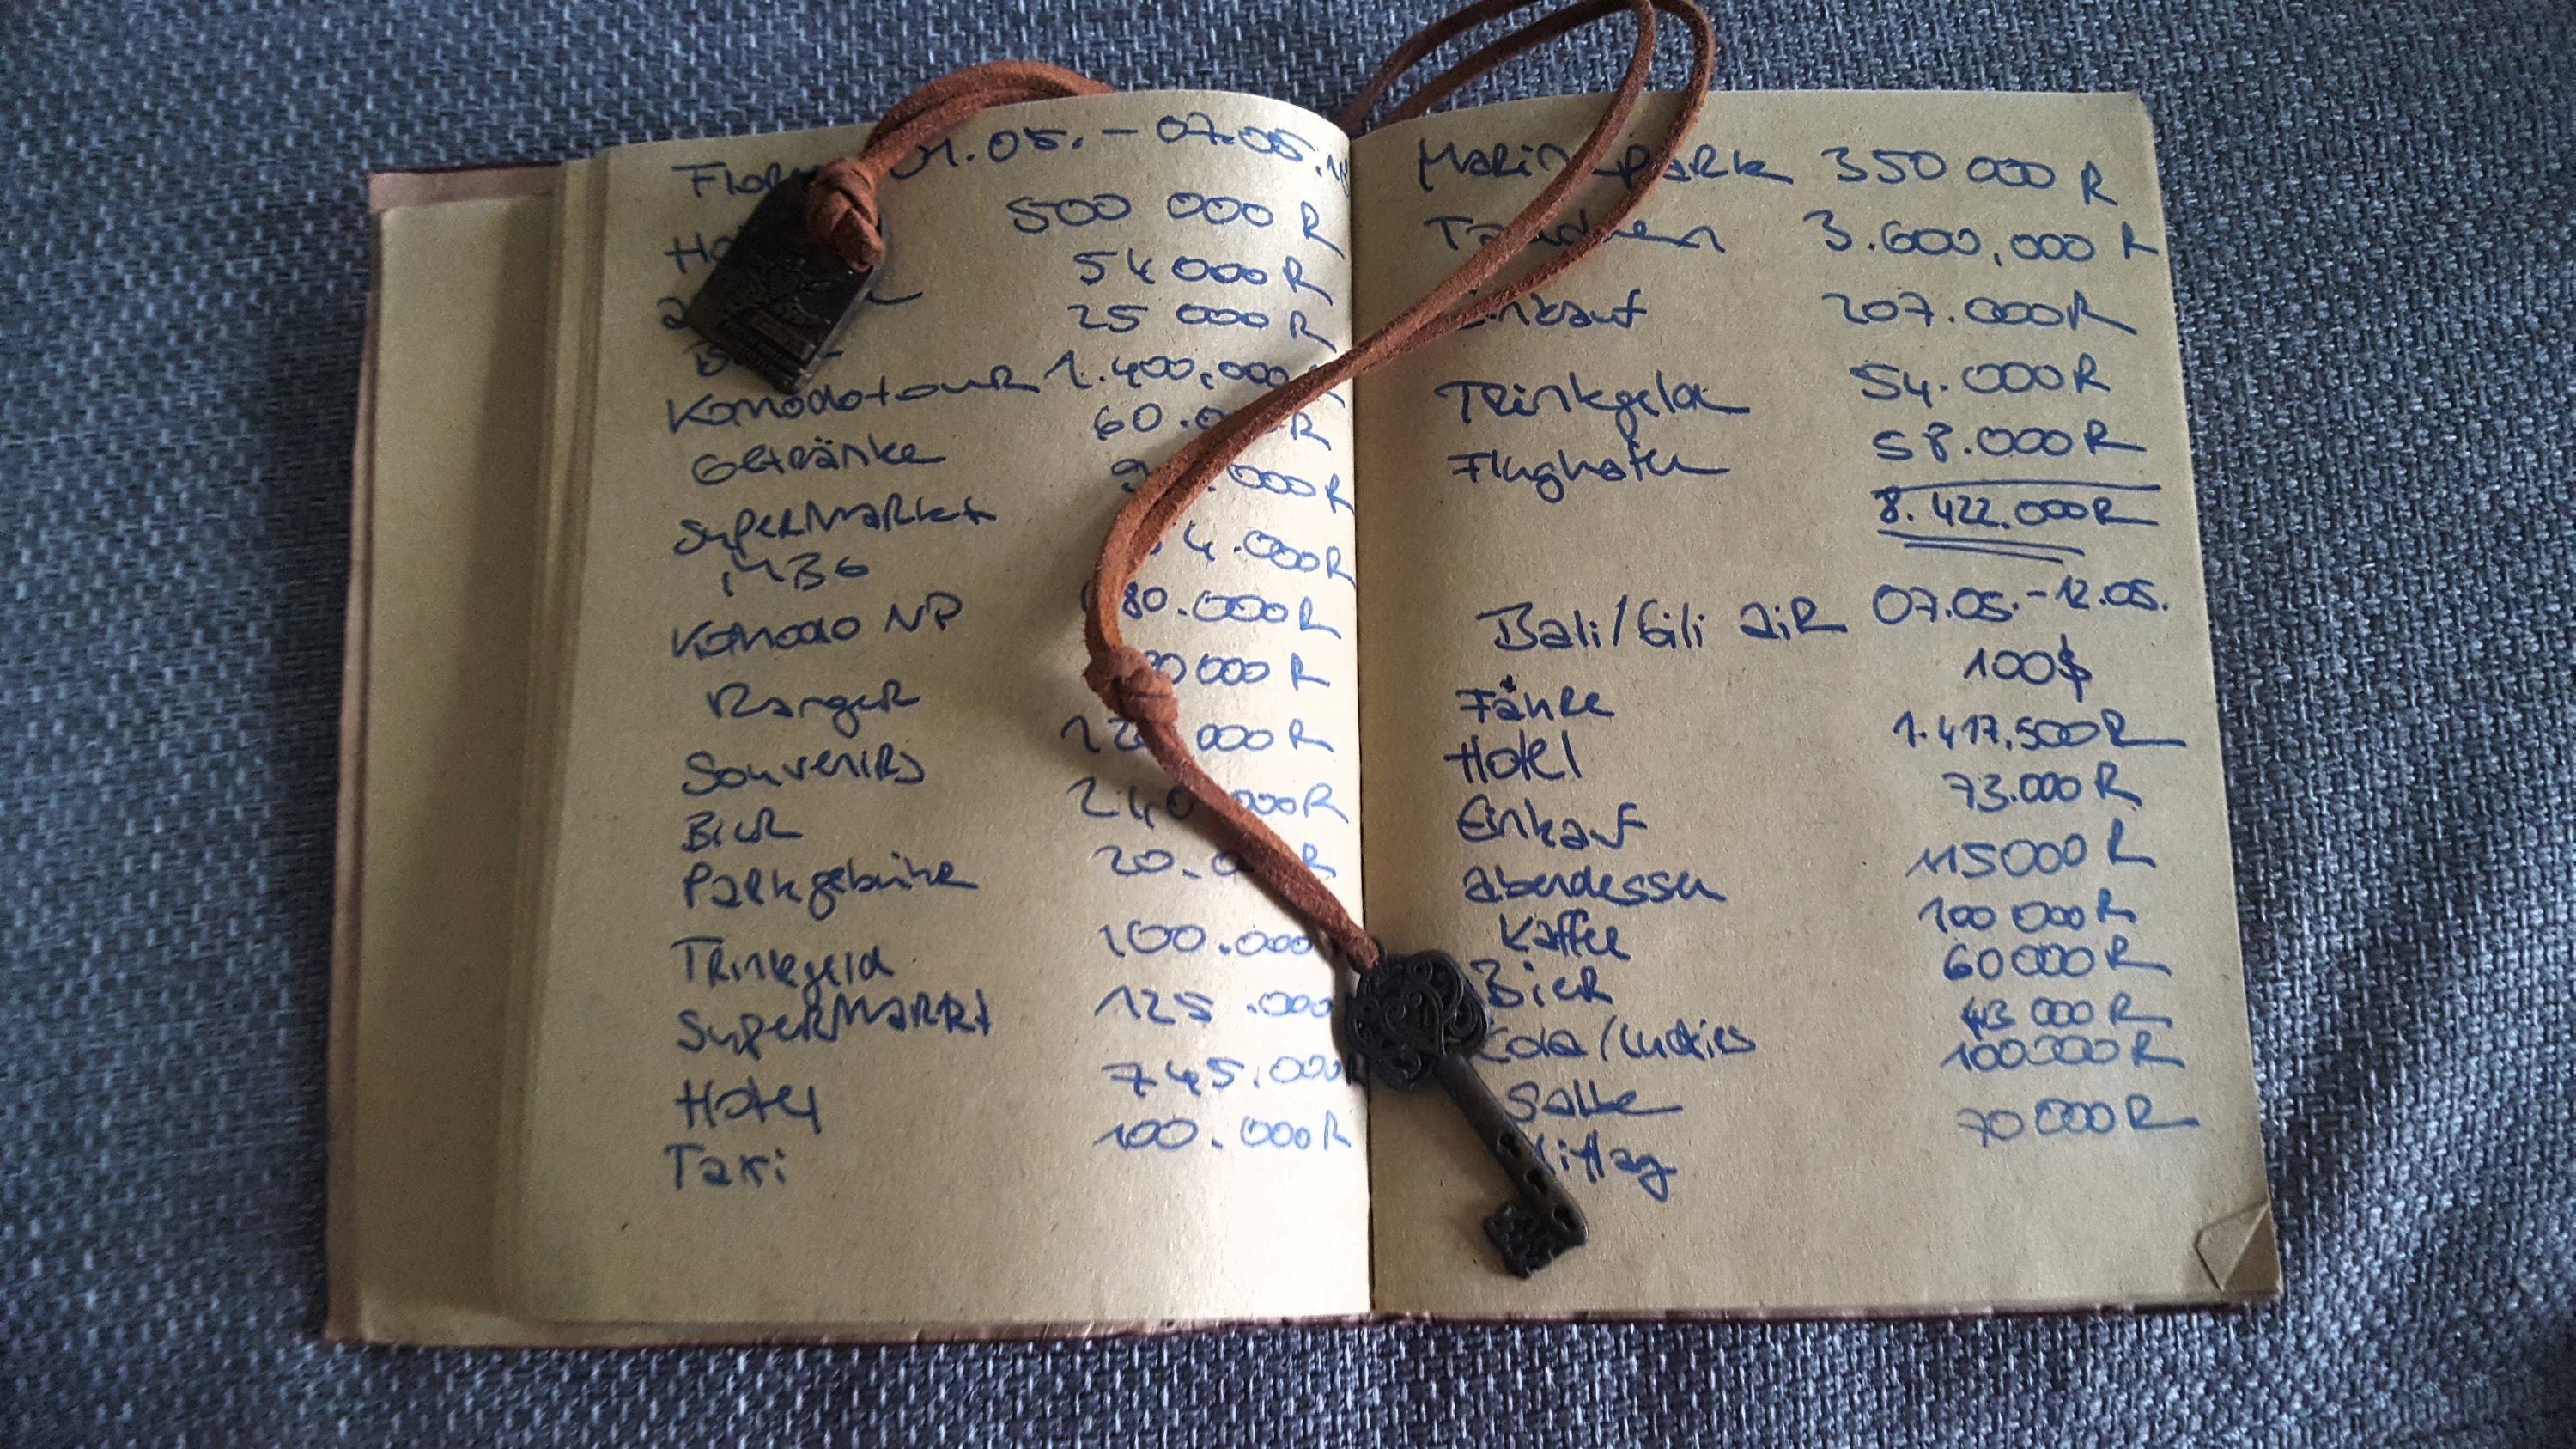 01.05. – 07.05.
500 000 R
54 000 R
25 000 R
Komodotour 1.400.000
Getränke 60. R
Supermarkt .000 R
IMBß 4.000 R
Komodo NP 80.000 R
Ranger 000 R
Souvenirs 000 R
Bier 240 000 R
Parkgebühr 20. R
Trinkgeld 100.000
Supermarkt 125.000
Hotel 745.000
Taxi 100.000 R
park 350 000 R
Tauchen 3.600,000 R
207.000 R
Trinkgeld 54.000 R
Flughafen 58.000 R
8.422.000 R
Bali/Gili air 07.05.-12.05.
Fähre 100$
Hotel 1.417,500 R
Einkauf 73.000 R
Abendessen 115000 R
Kaffee 100 000 R
Bier 60000 R
Cola/Luckies 000 R
Salbe 100000 R
70 000 R